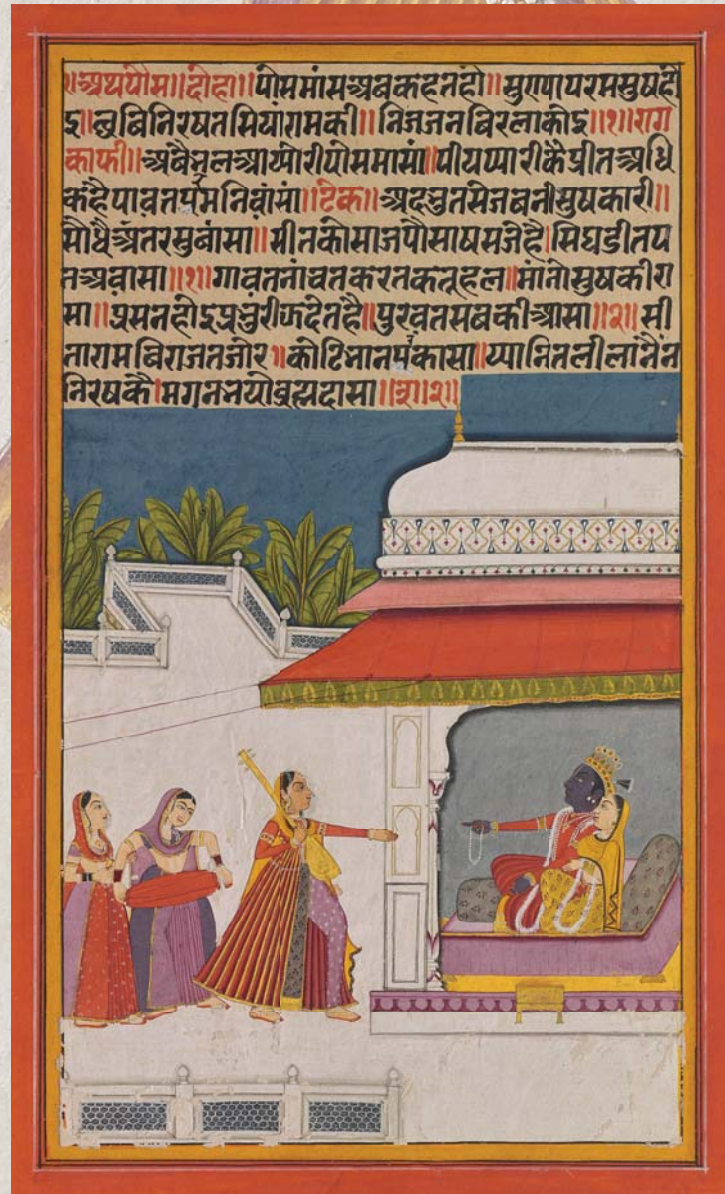 ॥अथपौस॥दोहा॥पोसमांसअबकहतहौं॥सुणापरमसुषहो
इ॥छबिनिरषतसियांरामकी॥निजजनबिरलाकोइ॥१॥राग
काफी॥अंबै आयोरीपोसमासां॥पीयप्यारीकैप्रीतअधि
कंहैपावतप्रेमनिवांसां॥टेक॥अदभुतसेजबनीसुषकारी॥
सौधैअंतरसुबांसा॥सीतकोसाजपौसाषसजेहै।सिघडीतप
तअवासा॥१॥गावतनांवतकरतकतूहल॥मांनोसुषकीरा
सा॥प्रसनहोइप्रभुरीझदेतहै॥पुरवतसबकीआसा॥२॥सी
तारामबिराजतजोर॥कोटिभानप्रकासा॥ लीलांनैंन
निरषकै।मगनभयोब्रह्मदासा॥३॥२॥